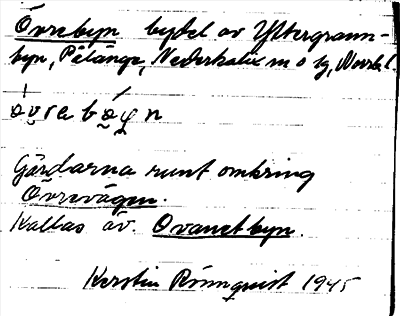 Övrebyn bydel av Yttergrann-
byn, Pålänge, Nederkalix m o tg, Norrb l.
övrabyn
Gårdarna runt omkring
Övrevägen.
Kallas äv. Ovanetbyn.
Kerstin Rönnquist 1945